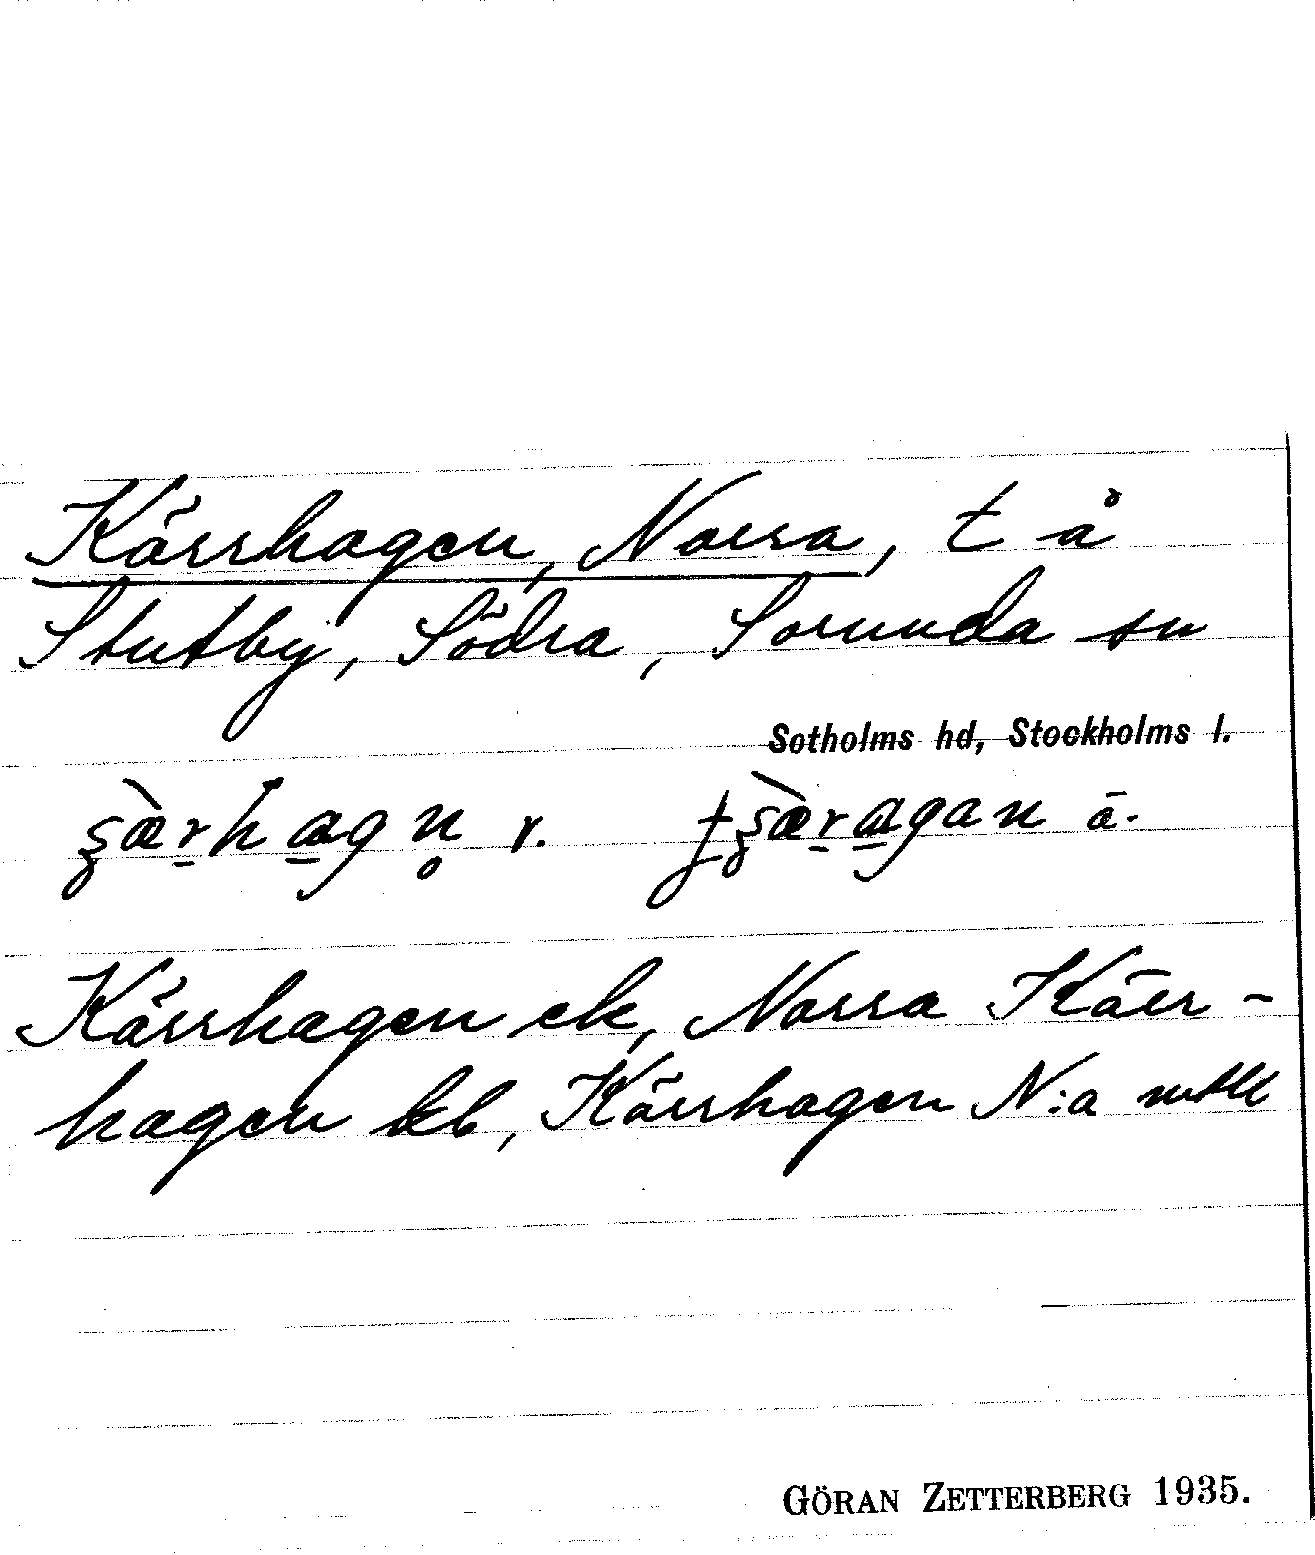 Kärrhagen, Norra, t å
Stutby, Södra, Sorunda sn
Sotholms hd, Stockholms l.
r. ä.
Kärrhagen ek, Norra Kärr-
hagen kb, Kärrhagen N:a mtll
GÖRAN ZETTERBERG 1935.